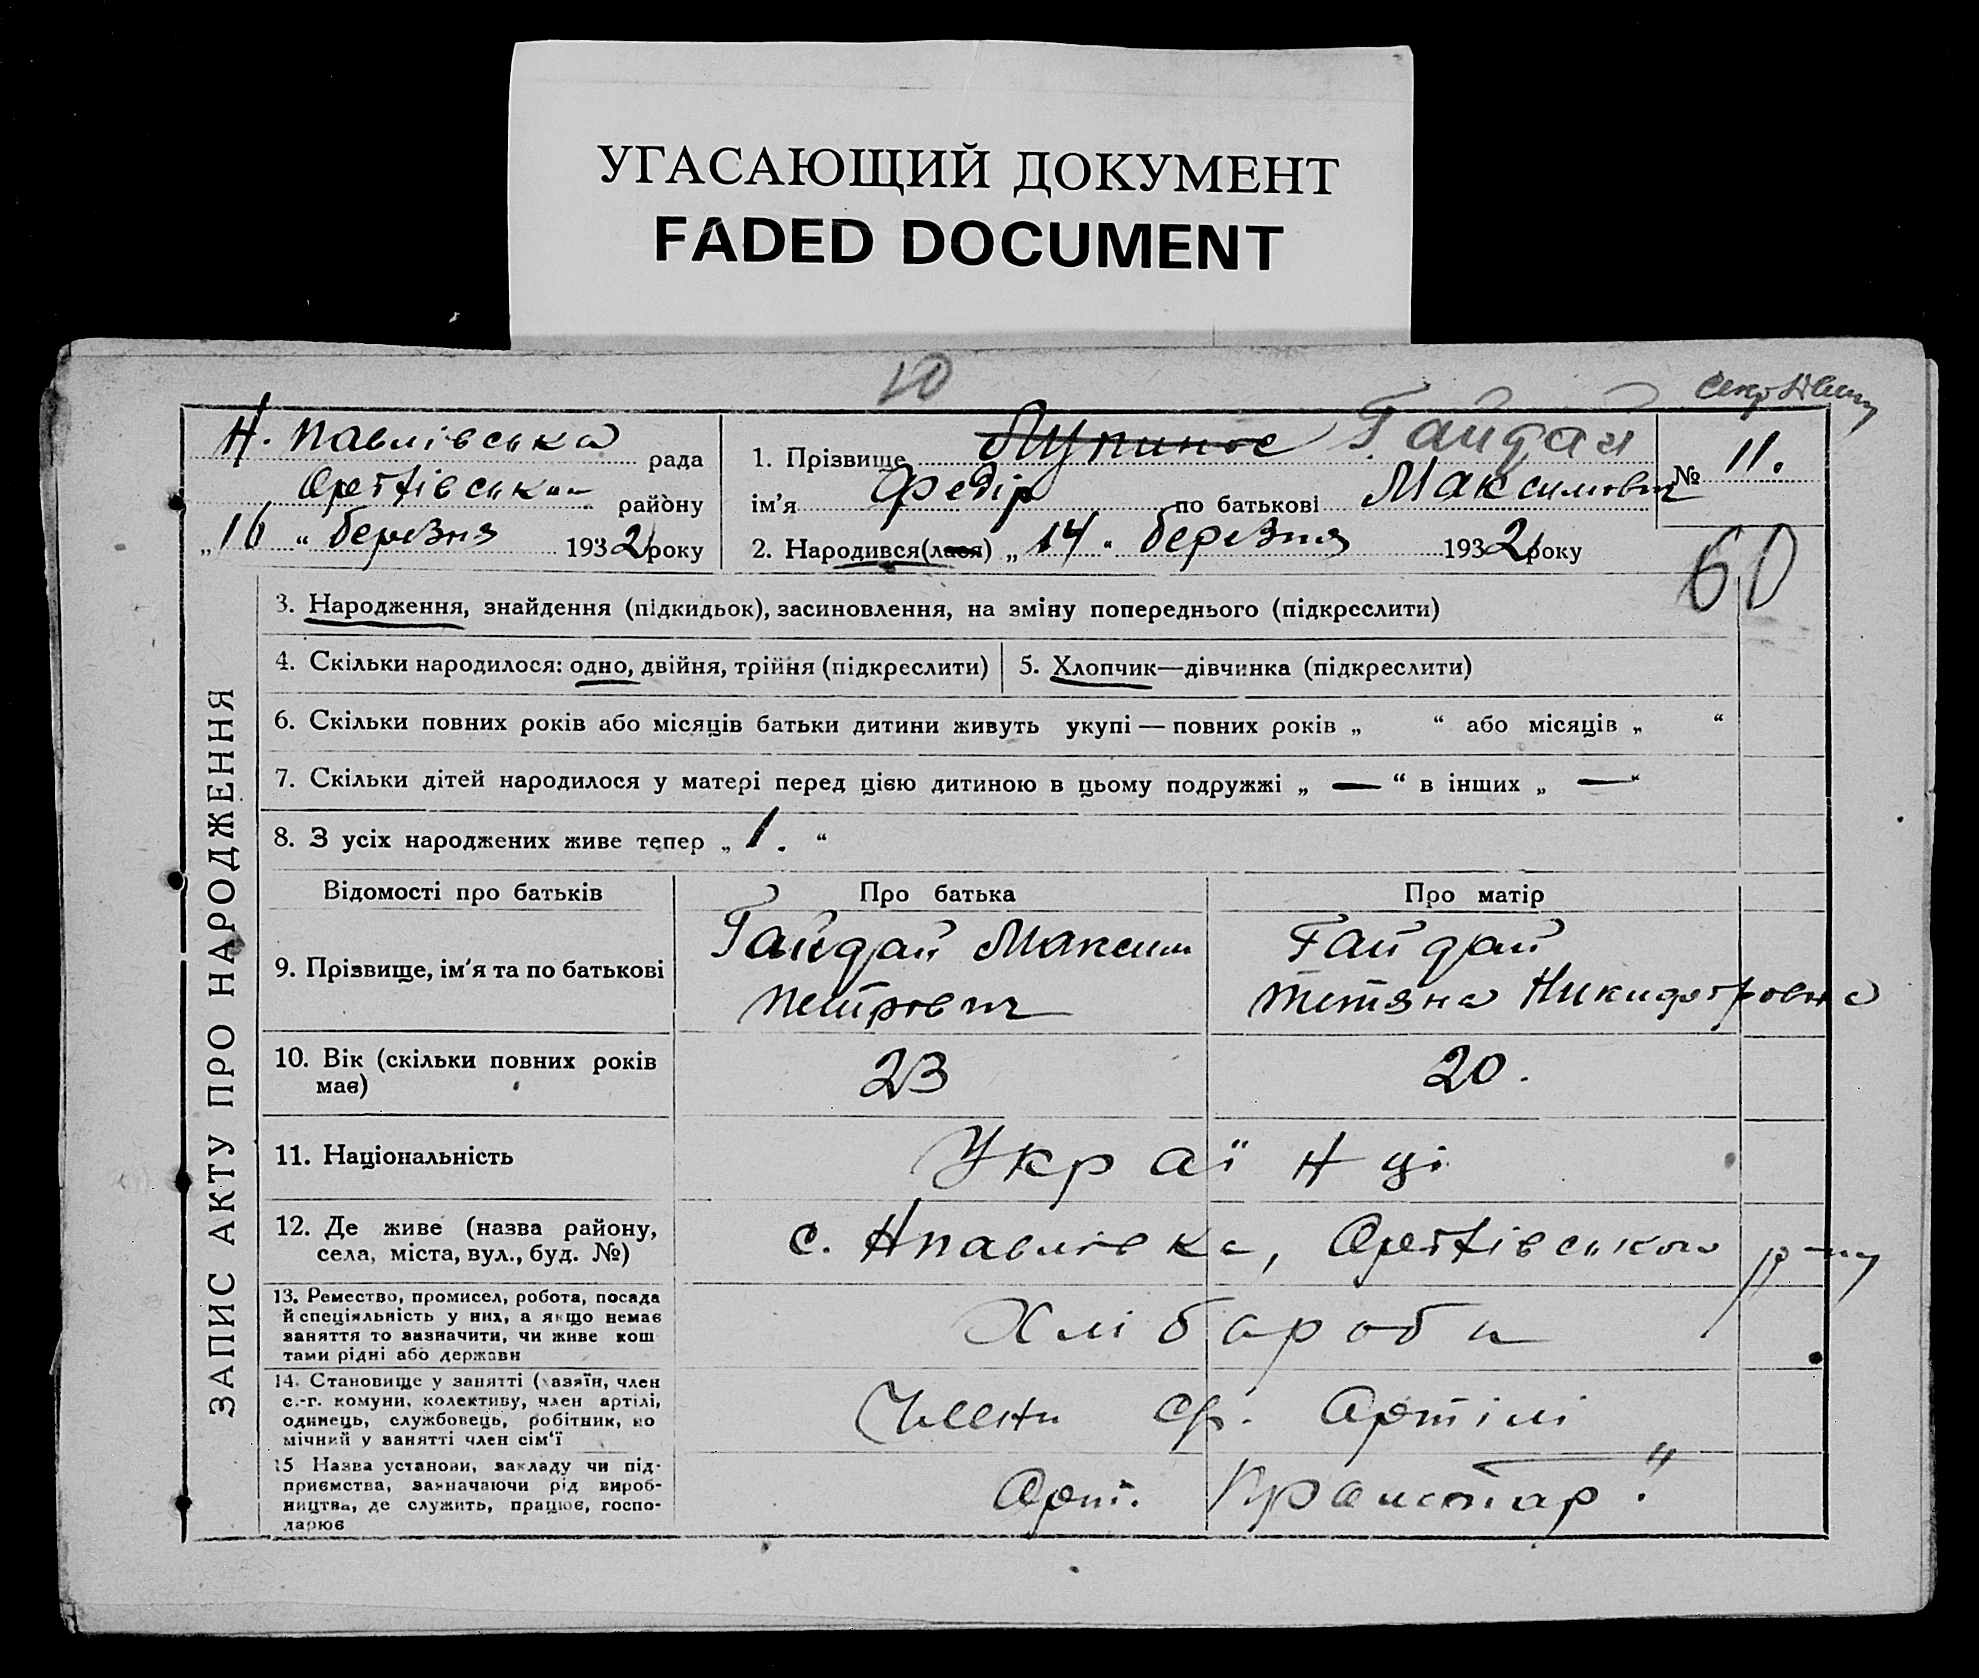 УГАСАЮЩИЙ ДОКУМЕНТ
FADED DOCUMENT
Н. Павлівська рада
району
„16“ березня 1932 року
1. Прізвище Лупинос Гайдай
ім'я Федір по батькові Максимович
№ 11.
2. Народився(лася) „14“ березня 1932 року
60
3. Народження, знайдення (підкидьок), засиновлення, на зміну попереднього (підкреслити)
4. Скільки народилося: одно, двійня, трійня (підкреслити)
5. Хлопчик—дівчинка (підкреслити)
6. Скільки повних років або місяців батьки дитини живуть укупі — повних років „ “ або місяців „ “
7. Скільки дітей народилося у матері перед цією дитиною в цьому подружжі „ — “ в інших „ — “
8. З усіх народжених живе тепер „ 1. “
ЗАПИС АКТУ ПРО НАРОДЖЕННЯ
Відомості про батьків
Про батька
Про матір
9. Прізвище, ім'я та по батькові
Гайдай Максим
Петрович
Гайдай
Тетяна
10. Вік (скільки повних років
має)
23
20.
11. Національність
Українці
12. Де живе (назва району,
села, міста, вул., буд. №)
с. Нпавлівка, р-ну
13. Ремество, промисел, робота, посада
й спеціяльність у них, а якщо немає
заняття то зазначити, чи живе кош
тами рідні або держави
Хлібароби
14. Становище у занятті (хазяїн, член
с.-г. комуни, колективу, член артілі,
одинець, службовець, робітник, по
мічний у занятті член сім'ї
Члени Артілі
15 Назва установи, закладу чи під-
приємства, зазначаючи рід вироб-
ництва, де служить, працює, госпо-
дарює
Арт.